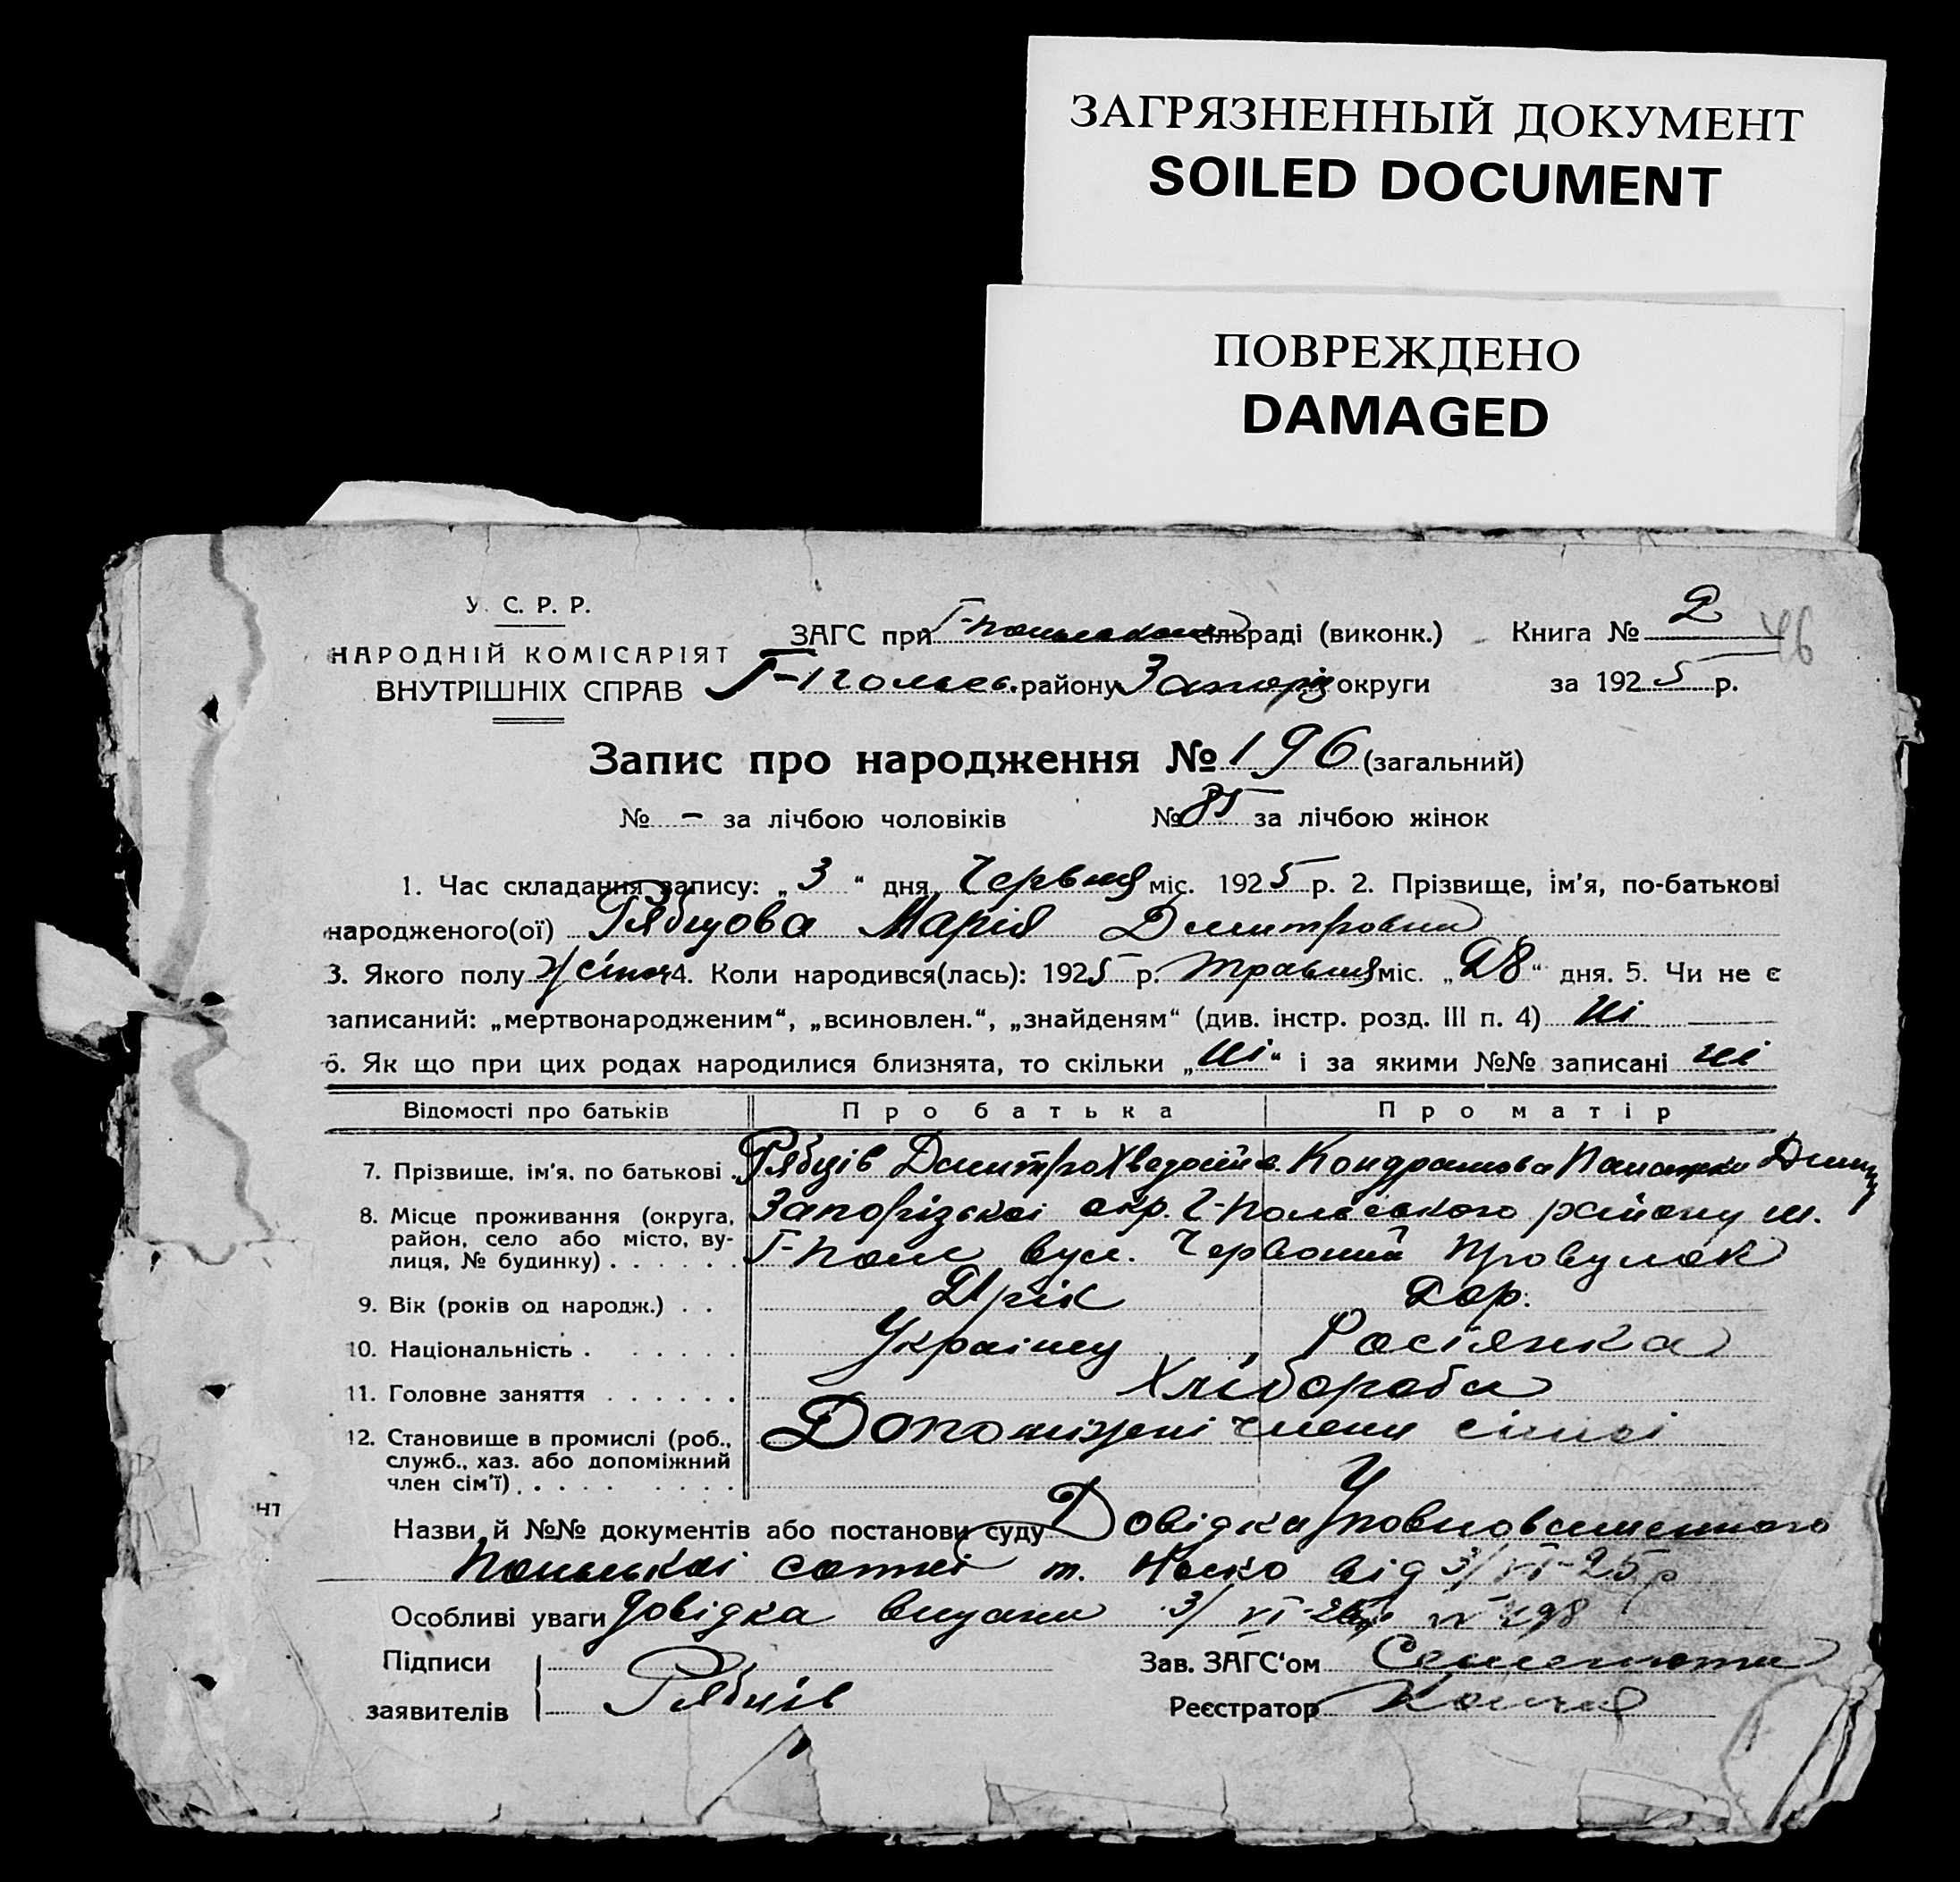 ЗАГРЯЗНЕННЫЙ ДОКУМЕНТ
SOILED DOCUMENT
ПОВРЕЖДЕНО
DAMAGED
У. С. Р. Р.
НАРОДНІЙ КОМІСАРІЯТ
ВНУТРІШНІХ СПРАВ
ЗАГС при сільраді (виконк.) Книга № 2 46
району Запоріз округи за 1925 р.
Запис про народження № 196 (загальний)
№ - за лічбою чоловіків № 85 за лічбою жінок
1. Час складання запису: „3“ дня Червня міс. 1925 р. 2. Прізвище, ім'я, по-батькові
народженого(ої) Рябцова Марія Дмитровна
3. Якого полу 4. Коли народився(лась): 1925 р. травня міс. „28“ дня. 5. Чи не є
записаний: „мертвонародженим“, „всиновлен.“, „знайденям“ (див. інстр. розд. III п. 4) Ні
6. Як що при цих родах народилися близнята, то скільки „Ні“ і за якими №№ записані Ні
Відомості про батьків Про батька Про матір
7. Прізвище, ім'я, по батькові Рябців Дмитро Кондрашова
8. Місце проживання (округа, район, село або місто, вулиця, № будинку) Запорізькоі окр. Г-польського району м.
Г-поле вул. Червоний провулок
9. Вік (років од народж.) 21 рік 20 р.
10. Національність Украінец Росіянка
11. Головне заняття Хлібороби
12. Становище в промислі (роб., служб., хаз. або допоміжний член сім'ї) Допоміжні члени сімьі
Назви й №№ документів або постанови суду Довідка Уповноваженного
сотні т. від 3/VI-25 р
Особливі уваги Довідка видана 3/VI-25р № 498
Підписи Зав. ЗАГС'ом
заявителів Рябців Реєстратор